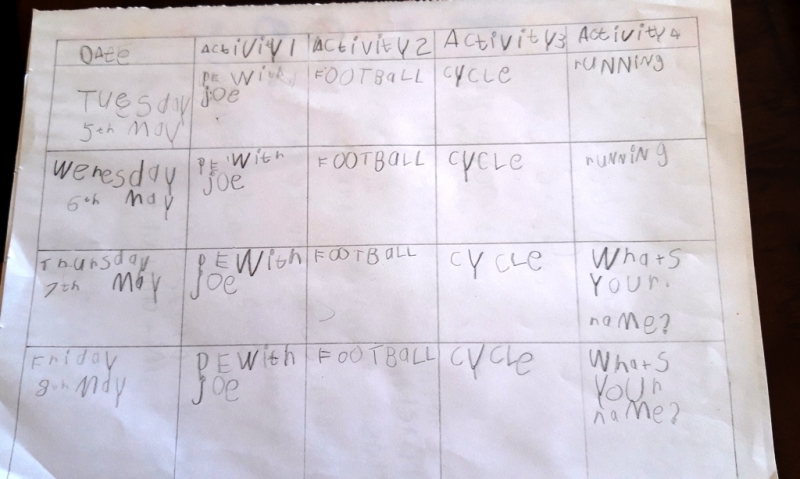 DATE ACtiVitY 1 ACtiVitY 2 ACtiVitY3 ACtiVitY 4
TUESday PE With FOOTBALL CYCLE rUNNiNg
5th MaY joe
WeResday PE With FOOTBALL CYCLE rUNNiNg
6th MaY joe
Thursday PE With FOOTBALL CYCLE Whats
7th May joe YOUr.
name?
Friday PE With FOOTBALL CYCLE Whats
8th May joe YOUr
name?